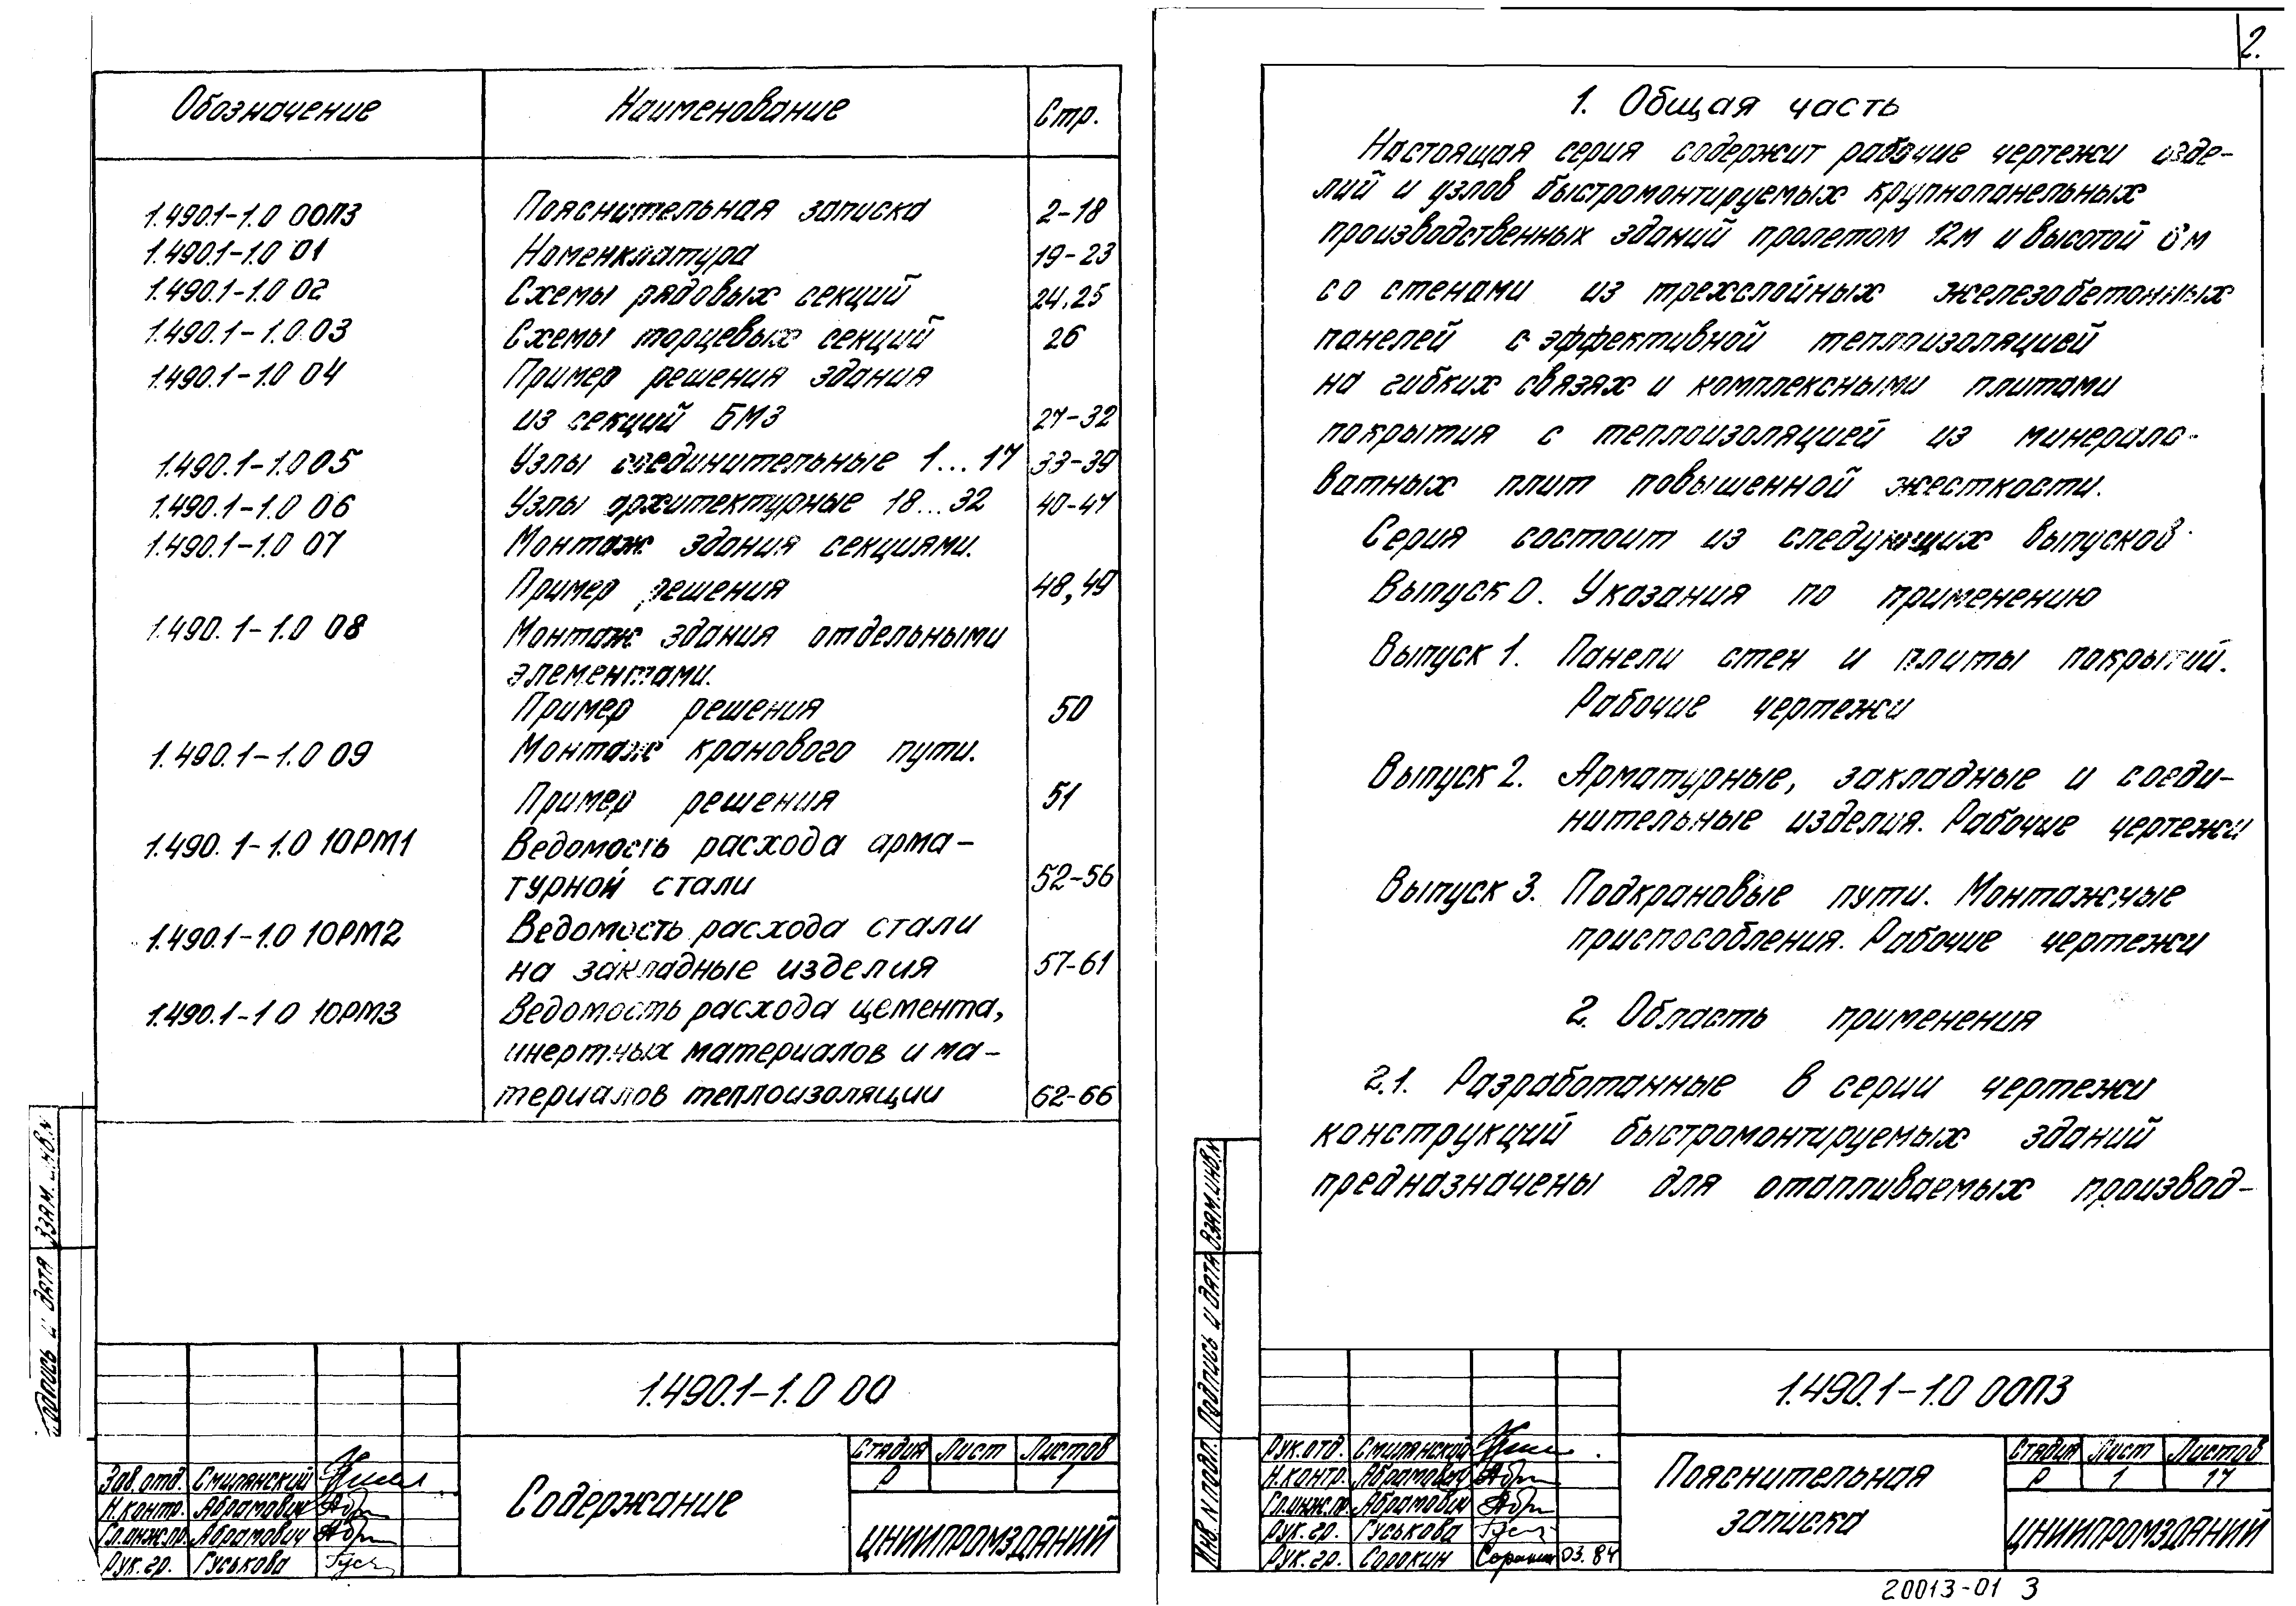 Обозначение Наименование Стр.
1.490.1-1.0 00ПЗ Пояснительная записка 2-18
1.490.1-1.0 01 Номенклатура 19-23
1.490.1-1.0 02 Схемы рядовых секций 24,25
1.490.1-1.0 03 Схемы торцевых секций 26
1.490.1-1.0 04 Пример решения здания
из секций БМЗ 27-32
1.490.1-1.0 05 Узлы соединительные 1...17 33-39
1.490.1-1.0 06 Узлы архитектурные 18...32 40-47
1.490.1-1.0 07 Монтаж здания секциями.
Пример решения 48,49
1.490.1-1.0 08 Монтаж здания отдельными
элементами.
Пример решения 50
1.490.1-1.0 09 Монтаж кранового пути.
Пример решения 51
1.490.1-1.0 10РМ1 Ведомость расхода арма-
турной стали 52-56
1.490.1-1.0 10РМ2 Ведомость расхода стали
на закладные изделия 57-61
1.490.1-1.0 10РМ3 Ведомость расхода цемента,
инертных материалов и ма-
териалов теплоизоляции 62-66
Подпись и дата Взам. инв. №
1.490.1-1.0 00
Стадия Лист Листов
Р 1
Содержание
ЦНИИПРОМЗДАНИЙ
Зав. отд. Смилянский
Н. контр. Абрамович
Гл. инж. пр. Абрамович
Рук. гр. Гуськова
2.
1. Общая часть
Настоящая серия содержит рабочие чертежи изде-
лий и узлов быстромонтируемых крупнопанельных
производственных зданий пролетом 12м и высотой 6м
со стенами из трехслойных железобетонных
панелей с эффективной теплоизоляцией
на гибких связях и комплексными плитами
покрытия с теплоизоляцией из минерало-
ватных плит повышенной жесткости.
Серия состоит из следующих выпусков.
Выпуск 0. Указания по применению
Выпуск 1. Панели стен и плиты покрытий.
Рабочие чертежи
Выпуск 2. Арматурные, закладные и соеди-
нительные изделия. Рабочие чертежи
Выпуск 3. Подкрановые пути. Монтажные
приспособления. Рабочие чертежи
2. Область применения
2.1. Разработанные в серии чертежи
конструкций быстромонтируемых зданий
предназначены для отапливаемых производ-
Инв. № подл. Подпись и дата Взам. инв. №
1.490.1-1.0 00ПЗ
Стадия Лист Листов
Р 1 17
Пояснительная
записка
ЦНИИПРОМЗДАНИЙ
Рук. отд. Смилянский
Н. контр. Абрамович
Гл. инж. пр. Абрамович
Рук. гр. Гуськова
Рук. гр. Сорокин 03.84
20013-01 3